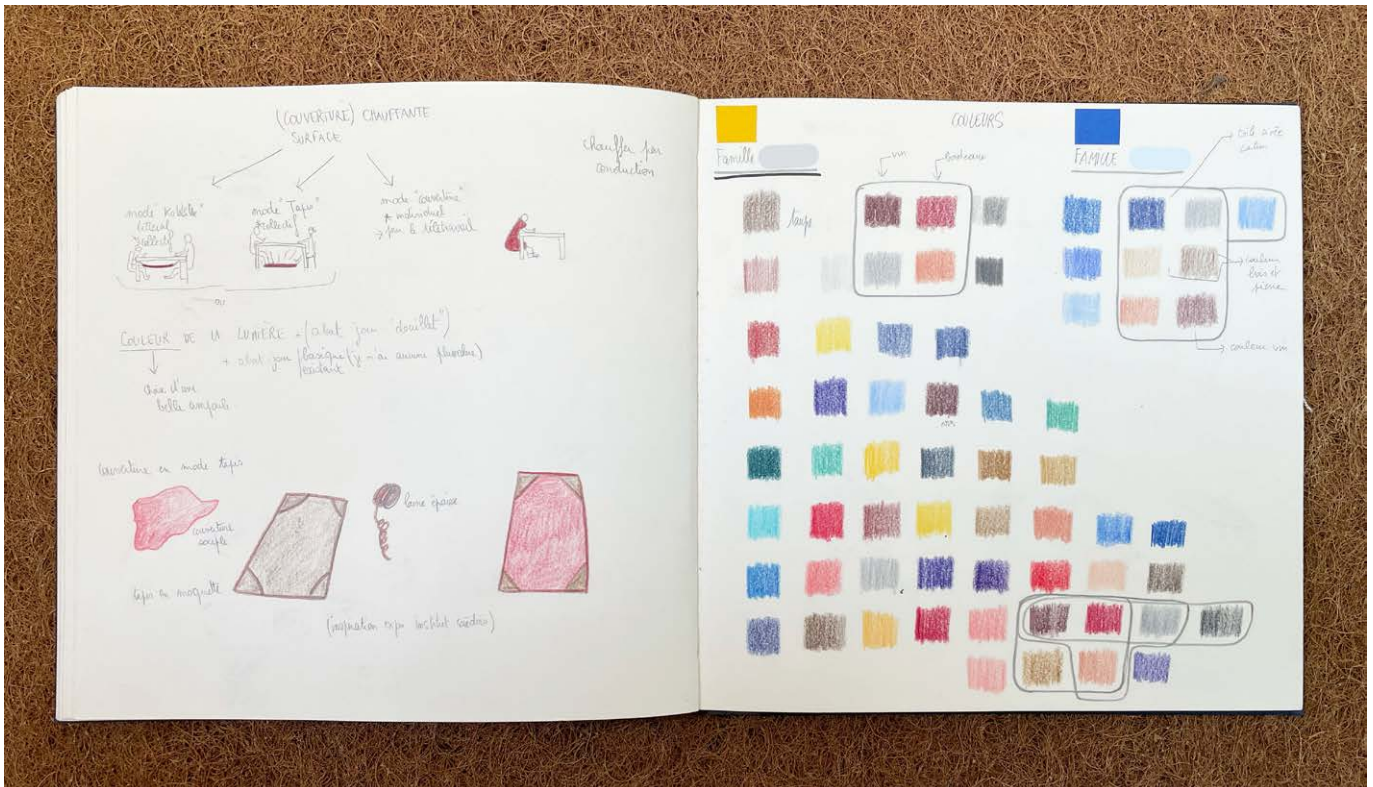 (COUVERTURE) CHAUFFANTE
SURFACE
chauffer par
conduction
mode "Kotatsu"
littéral
collectif
mode "Tapis"
collectif
mode "couverture"
individuel
→ pour le télétravail
ou
COULEUR DE LA LUMIÈRE = (abat jour "douillet")
+ abat jour basique (y'n'ai aucune
existant
choix d'une
belle ampoule
couverture en mode tapis
couverture
souple
laine épaisse
tapis en moquette
(inspiration expo institut suédois)
COULEURS
Famille
taupe
vin
bordeaux
FAMILLE
toile cirée
couleur
bois et
pierre
couleur vin